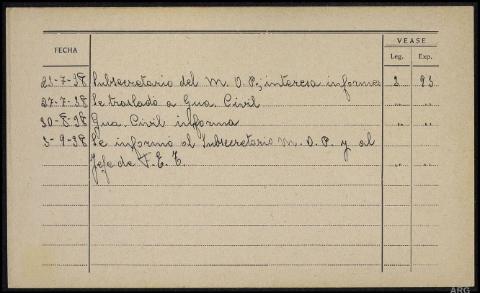 VEASE
FECHA Leg. Exp.
23-7-38 Subsecretario del M. O. P.; interesa informes 3 93
27-7-38 Se traslado a Gua. Civil " "
30-8-38 Gua. Civil informa " "
3-9-38 Se informó al Subsecretario M. O. P. y al
Jefe de F. E. T. " "
ARG